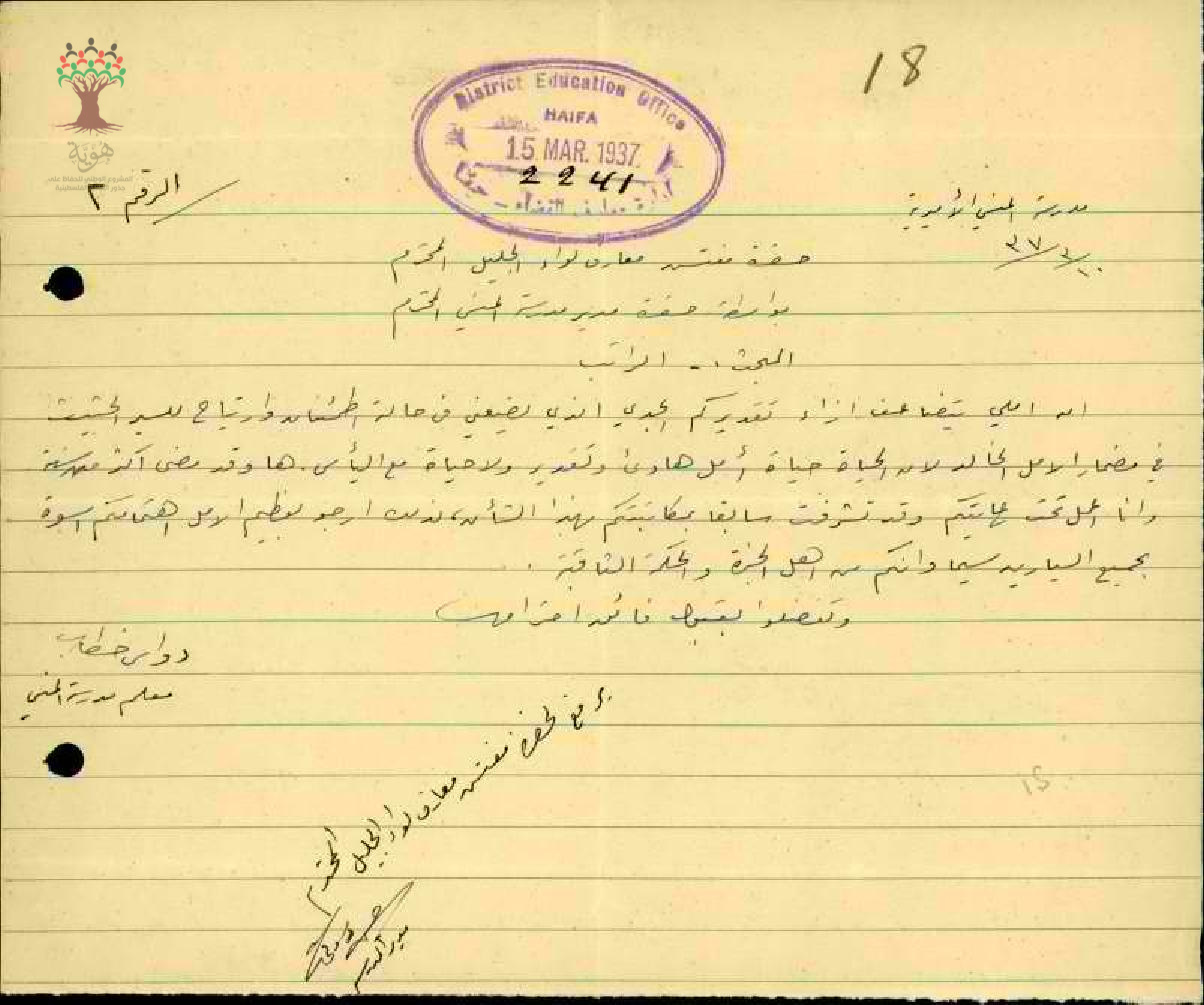 18
District Education Office
HAIFA
15 MAR. 1937
2241
ادارة معارف القضاء - حيفا
هوية
المشروع الوطني للحفاظ على
الرقم ٢
مدرسة المنسي الأميرية
٣٧/٣/١٠
حضرة مفتش معارف لواء الجليل المحترم
بواسطة حضرة مدير مدرسة المنسي المحترم
المبحث :- الراتب
ان املي يتضاعف ازاء تقديركم الجدي الذي يضعني في حالة اطمئنان وارتياح للسير الحثيث
في مضمار الامل الخالد لان الحياة حياة أمل هادئ وتقدير ولا حياة مع اليأس. ها وقد مضى اكثر من سنة
وانا اعمل تحت حمايتكم وقد تشرفت سابقا بمكاتبتكم بهذا الشأن، لذلك ارجو بعظيم الامل اهتمامكم اسوة
بجميع السيارين سيما وانكم من اهل الخبرة والحكمة الثاقبة .
وتفضلوا بقبول فائق احترامي
دواس خطاب
معلم مدرسة المنسي
لحضرة مفتش معارف لواء الجليل المحترم
مدير المدرسة
15